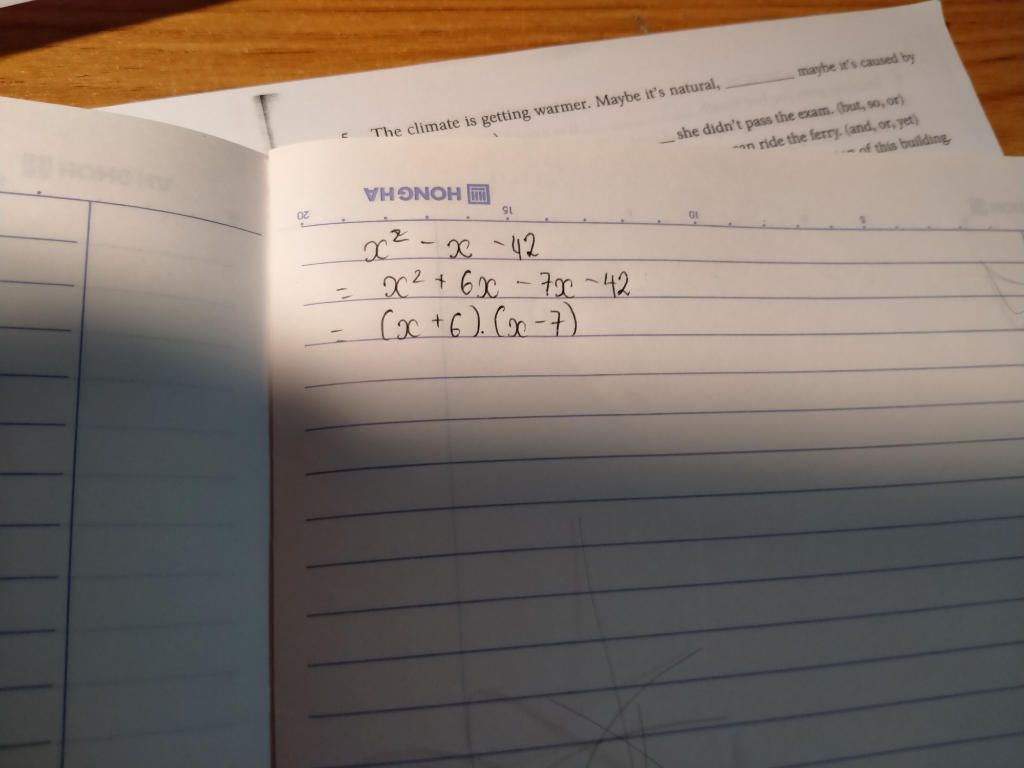 5. The climate is getting warmer. Maybe it's natural, ________ maybe it's caused by
she didn't pass the exam. (but, so, or)
ride the ferry. (and, or, yet)
of this building.
HONG HA
20 15 10 5
x² - x - 42
= x² + 6x - 7x - 42
= (x + 6).(x - 7)